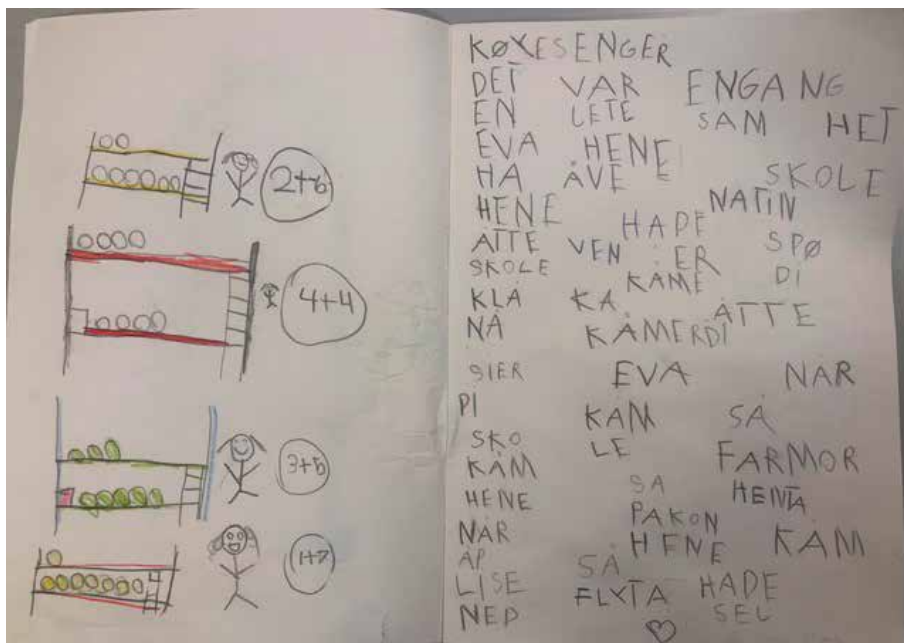 2+6
4+4
3+5
1+7
KØYESENGER
DET VAR ENGANG
EN LETE SAM HET
EVA HENE
HA ÅVE SKOLE
HENE HADE NATIN
ÅTTE VEN ER SPØ
SKOLE KÅME DI
KLÅ KA ÅTTE
NÅ KÅMERDI
SIER EVA NÅR
PI KÅM SÅ
SKO LE FARMOR
KÅM SA HENTA
HENE PAKON
NÅR HENE KÅM
ÅP SÅ HADE
LISE FLYTA SEU
NED